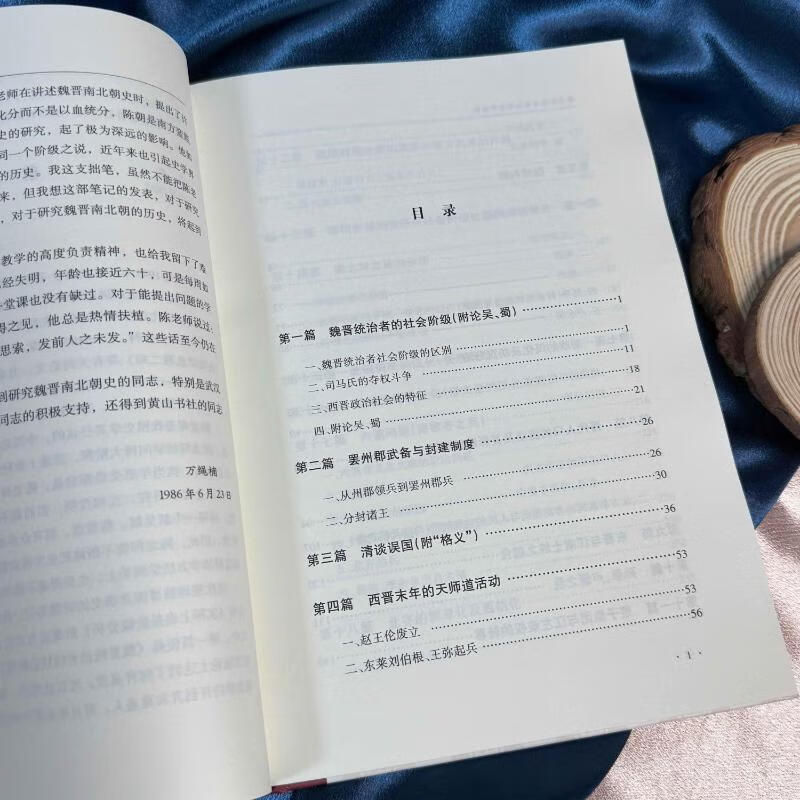 老师在讲述魏晋南北朝史时，提出了许
化分而不是以血统分，陈朝是南方蛮族
史的研究，起了极为深远的影响。他的
同一个阶级之说，近年来也引起史学界
的历史。我这支拙笔，虽然不能把陈老
来，但我想这部笔记的发表，对于研究
，对于研究魏晋南北朝的历史，将起到
教学的高度负责精神，也给我留下了难
经失明，年龄也接近六十，可是每周如
堂课也没有缺过。对于能提出问题的学
得之见，他总是热情扶植。陈老师说过：
思索，发前人之未发。”这些话至今仍在
到研究魏晋南北朝史的同志，特别是武汉
同志的积极支持，还得到黄山书社的同志
万绳楠
1986年6月23日
目 录
第一篇 魏晋统治者的社会阶级（附论吴、蜀）……1
一、魏晋统治者社会阶级的区别……1
二、司马氏的夺权斗争……11
三、西晋政治社会的特征……18
四、附论吴、蜀……21
第二篇 罢州郡武备与封建制度……26
一、从州郡领兵到罢州郡兵……26
二、分封诸王……30
第三篇 清谈误国（附“格义”）……36
第四篇 西晋末年的天师道活动……53
一、赵王伦废立……53
二、东莱刘伯根、王弥起兵……56
· 1 ·